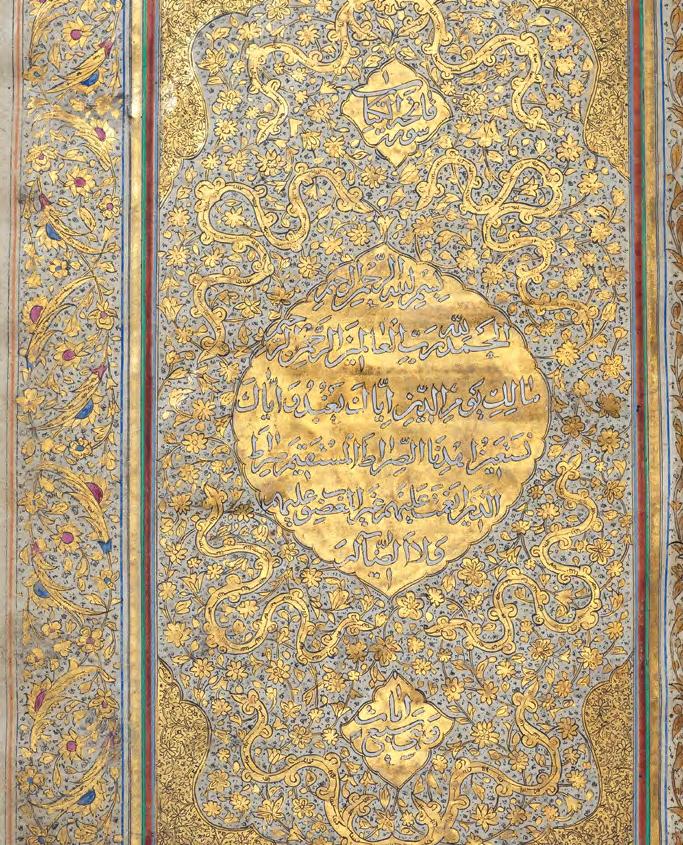 سورة
فاتحة الكتاب
بسم الله الرحمن الرحيم
الحمد لله رب العالمين الرحمن الرحيم
مالك يوم الدين إياك نعبد وإياك
نستعين اهدنا الصراط المستقيم صراط
الذين أنعمت عليهم غير المغضوب عليهم
ولا الضالين
وهي سبع
آيات